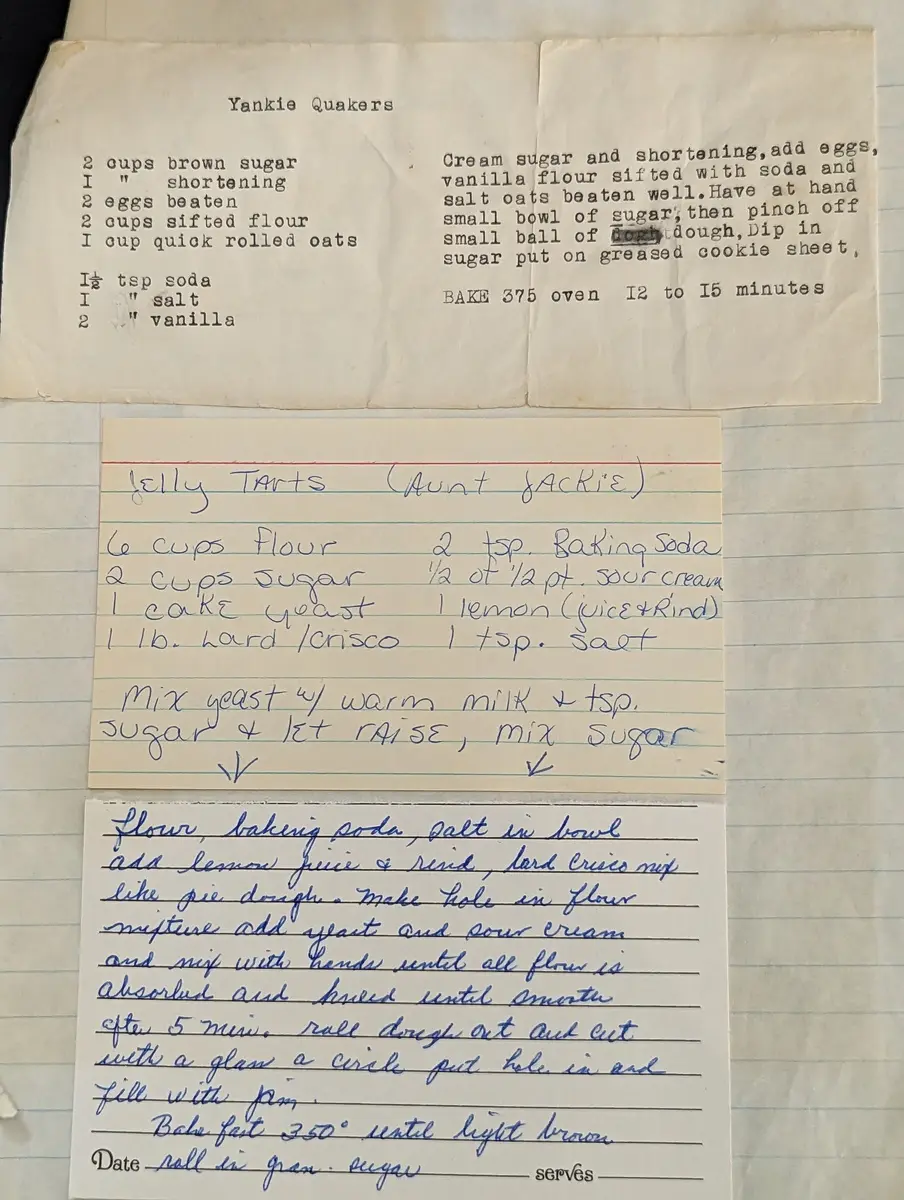 Yankie Quakers
2 cups brown sugar
I " shortening
2 eggs beaten
2 cups sifted flour
I cup quick rolled oats
I½ tsp soda
I " salt
2 " vanilla
Cream sugar and shortening,add eggs,
vanilla flour sifted with soda and
salt oats beaten well.Have at hand
small bowl of sugar, then pinch off
small ball of dough,Dip in
sugar put on greased cookie sheet,
BAKE 375 oven I2 to I5 minutes
Jelly Tarts (Aunt Jackie)
6 cups flour 2 tsp. Baking Soda
2 cups sugar 1/2 of 1/2 pt. sour cream
1 cake yeast 1 lemon (juice & Rind)
1 lb. Lard /Crisco 1 tsp. salt
Mix yeast w/ warm milk & tsp.
sugar & let raise, mix sugar
↓ ↓
flour, baking soda, salt in bowl
add lemon juice & rind, lard Crisco mix
like pie dough. Make hole in flour
mixture add yeast and sour cream
and mix with hands until all flour is
absorbed and kneed until smooth
after 5 min. roll dough out and cut
with a glass a circle put hole in and
fill with jam.
Bake fast 350° until light brown
Date roll in gran. sugar serves